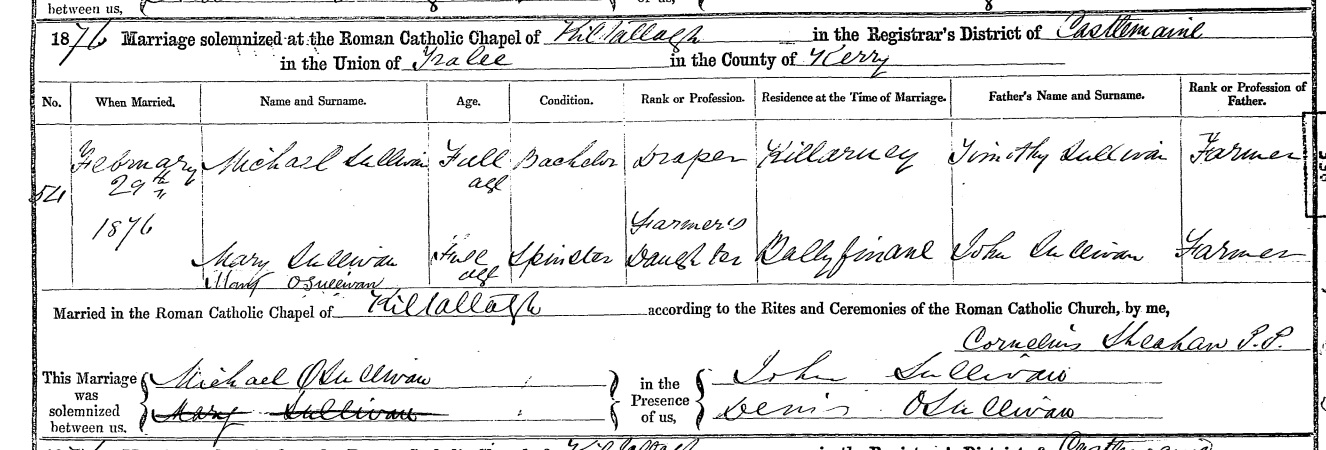 between us,
of us,
1876 Marriage solemnized at the Roman Catholic Chapel of Kiltallagh in the Registrar's District of Castlemaine
in the Union of Tralee in the County of Kerry
No. When Married. Name and Surname. Age. Condition. Rank or Profession. Residence at the Time of Marriage. Father's Name and Surname. Rank or Profession of Father.
54 February 29th 1876 Michael Sullivan Full age Bachelor Draper Killarney Timothy Sullivan Farmer
Mary Sullivan Full age Spinster Farmer's Daughter Ballyfinane John Sullivan Farmer
Mary OSullivan
Married in the Roman Catholic Chapel of Kiltallagh according to the Rites and Ceremonies of the Roman Catholic Church, by me,
Cornelius Sheahan P.P.
This Marriage was solemnized between us, Michael OSullivan in the Presence of us, John Sullivan
Mary Sullivan Denis OSullivan